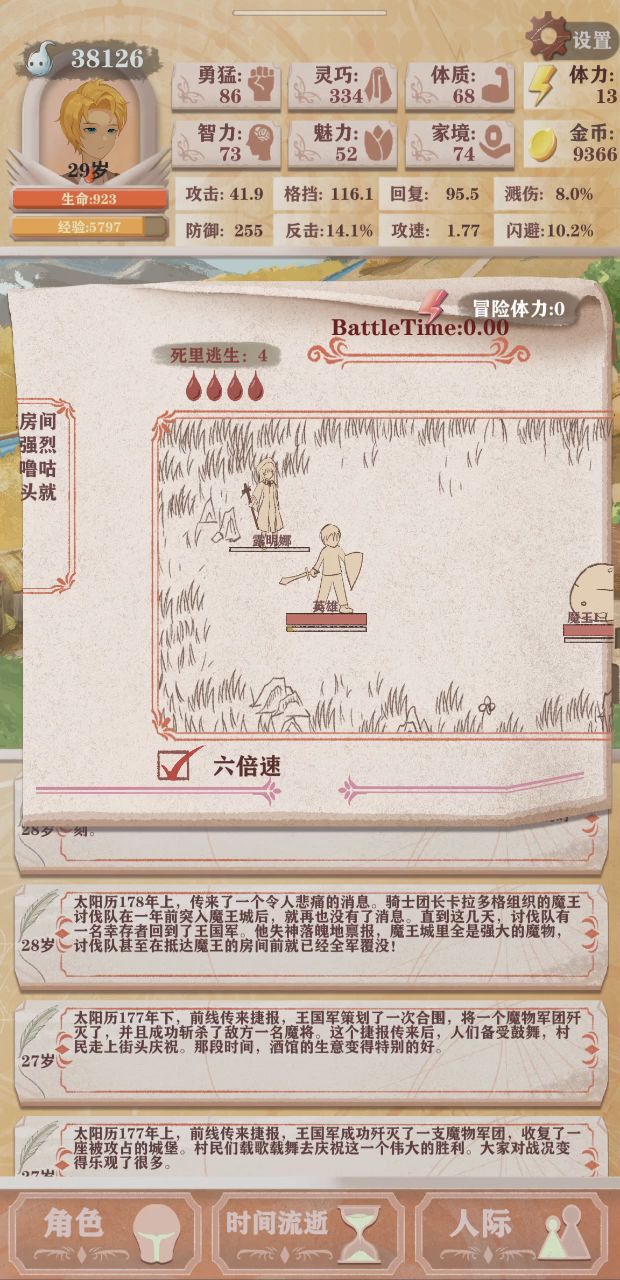 38126
设置
勇猛:
86
灵巧:
334
体质:
68
体力:
13
智力:
73
魅力:
52
家境:
74
金币:
9366
29岁
生命:923
经验:5797
攻击: 41.9 格挡: 116.1 回复: 95.5 溅伤: 8.0%
防御: 255 反击:14.1% 攻速: 1.77 闪避:10.2%
冒险体力:0
BattleTime:0.00
死里逃生: 4
房间
强烈
噜咕
头就
露明娜
英雄
魔王
六倍速
28岁
刻。
太阳历178年上，传来了一个令人悲痛的消息。骑士团长卡拉多格组织的魔王
讨伐队在一年前突入魔王城后，就再也没有了消息。直到这几天，讨伐队有
一名幸存者回到了王国军。他失神落魄地禀报，魔王城里全是强大的魔物，
讨伐队甚至在抵达魔王的房间前就已经全军覆没！
28岁
太阳历177年下，前线传来捷报，王国军策划了一次合围，将一个魔物军团歼
灭了，并且成功斩杀了敌方一名魔将。这个捷报传来后，人们备受鼓舞，村
民走上街头庆祝。那段时间，酒馆的生意变得特别的好。
27岁
太阳历177年上，前线传来捷报，王国军成功歼灭了一支魔物军团，收复了一
座被攻占的城堡。村民们载歌载舞去庆祝这一个伟大的胜利。大家对战况变
得乐观了很多。
27岁
角色
时间流逝
人际